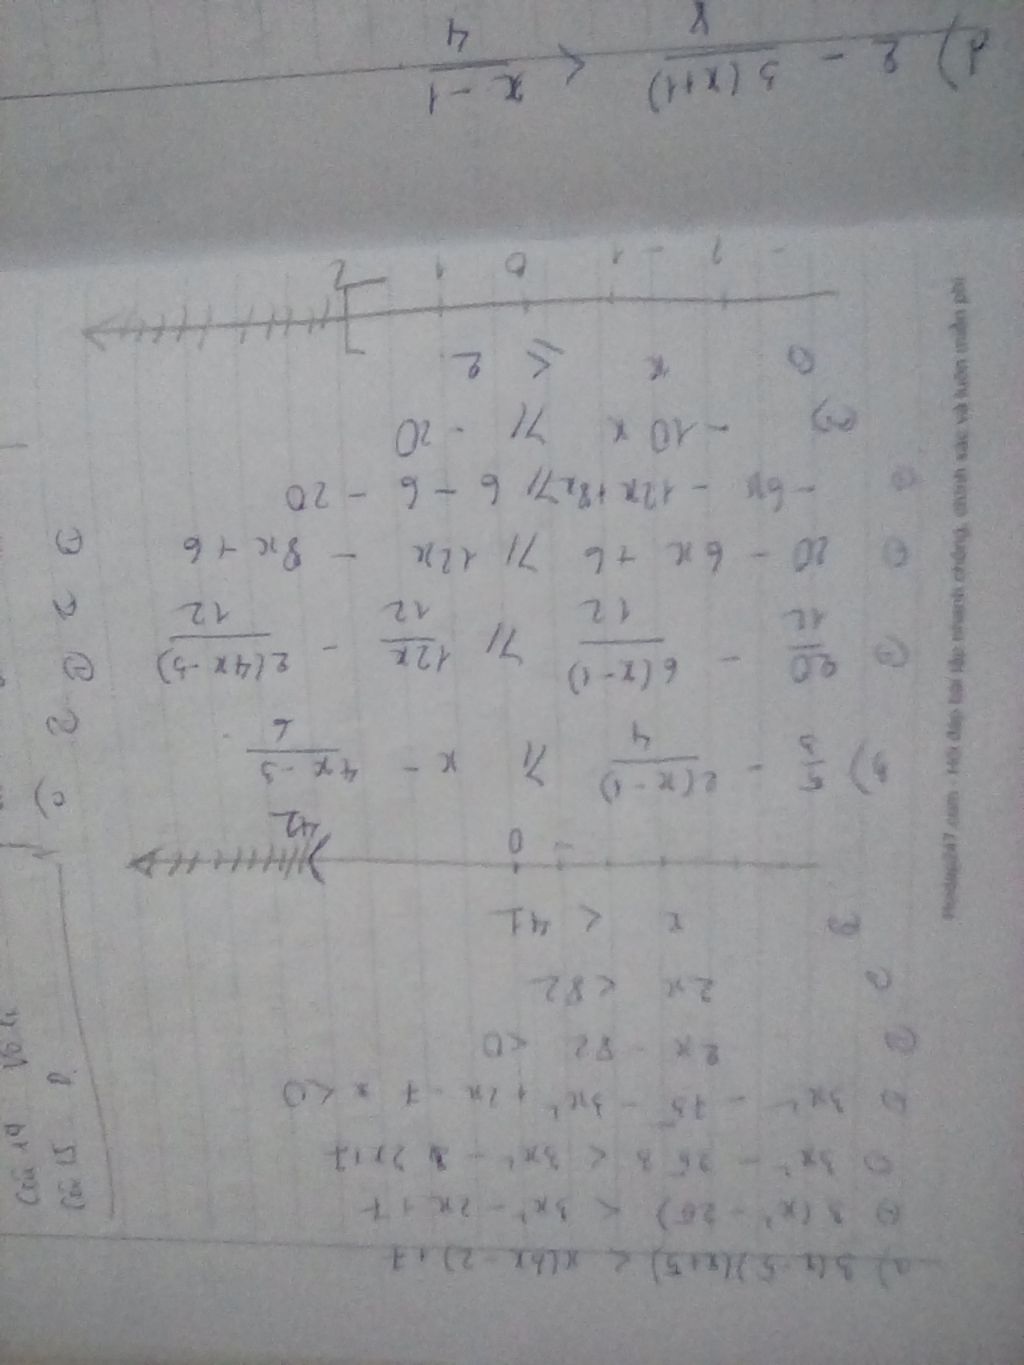 a) 3(x-5)(x+5) < x(3x-2)+7
⇔ 3(x² - 25) < 3x² - 2x + 7
⇔ 3x² - 75 - 3x² + 2x - 7 < 0
⇔ 2x - 82 < 0
⇔ 2x < 82
⇔ x < 41
0
42
b) 5/3 - 2(x-1)/4 ⩾ x - (4x-3)/6
⇔ 20/12 - 6(x-1)/12 ⩾ 12x/12 - 2(4x-3)/12
⇔ 20 - 6x + 6 ⩾ 12x - 8x + 6
⇔ -6x - 12x + 8x ⩾ 6 - 6 - 20
⇔ -10x ⩾ -20
⇔ x ⩽ 2
-2 -1 0 1 2
d) 2 - 3(x+1)/8 < (x-1)/4
c)
Câu 14
Câu 15
Hoidap247.com - Hỏi đáp bài tập nhanh chóng, chính xác và luôn miễn phí